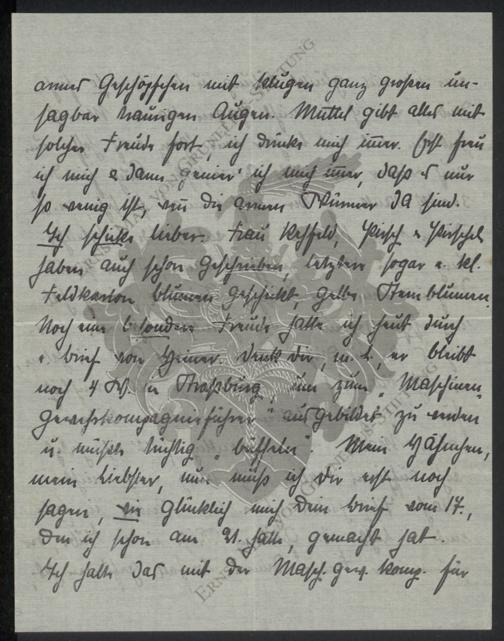 armes Geschöpfchen mit klugen ganz großen un-
sagbar traurigen Augen. Muttel gibt alles mit
solcher Freude fort - ich drücke mich immer. Erst freu
ich mich u dann genier' ich mich immer, daß es nur
so wenig ist, wenn die armen Würmer da sind.
Ich schicke lieber. Frau Rehfeld, Hirsch u
haben auch schon geschrieben, letztere sogar e. kl.
Feldkarton Blumen geschickt gelbe Sternblumen.
Noch eine besondere Freude hatte ich heut durch
e. Brief von Heiner. Denk Dir, m. L., er bleibt
noch 4 W. in Straßburg, um zum "Maschinen-
gewehrkompagnieführer" ausgebildet zu werden
u. müßte tüchtig "büffeln". Mein Hähnchen,
mein Liebster, nun muß ich Dir erst noch
sagen, wie glücklich mich Dein Brief vom 17.,
den ich schon am 21. hatte, gemacht hat.
Ich halte das mit der Masch. gew. komp. für
ERNST GRAF VON GRUNELIUS-STIFTUNG